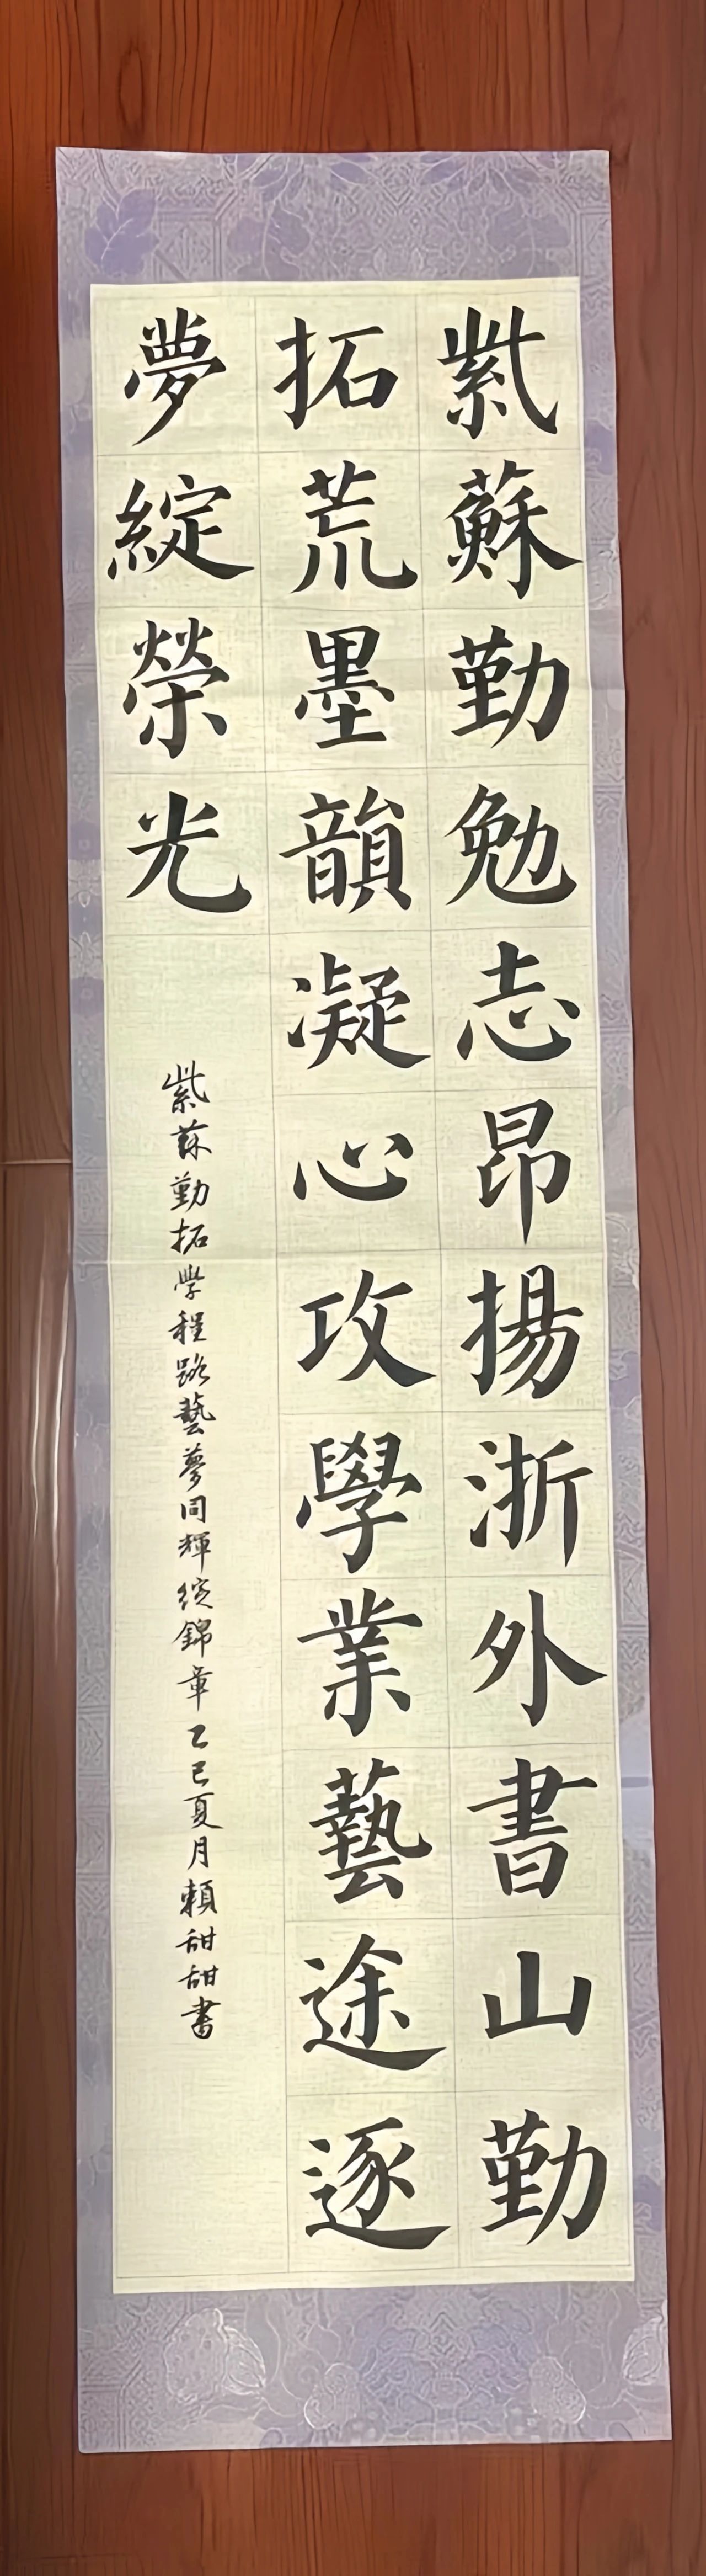 紫蘇勤勉志昂揚浙外書山勤
拓荒墨韻凝心攻學業藝途逐
夢綻榮光
紫蘇勤拓學程路藝夢同輝綻錦章乙巳夏月賴甜甜書